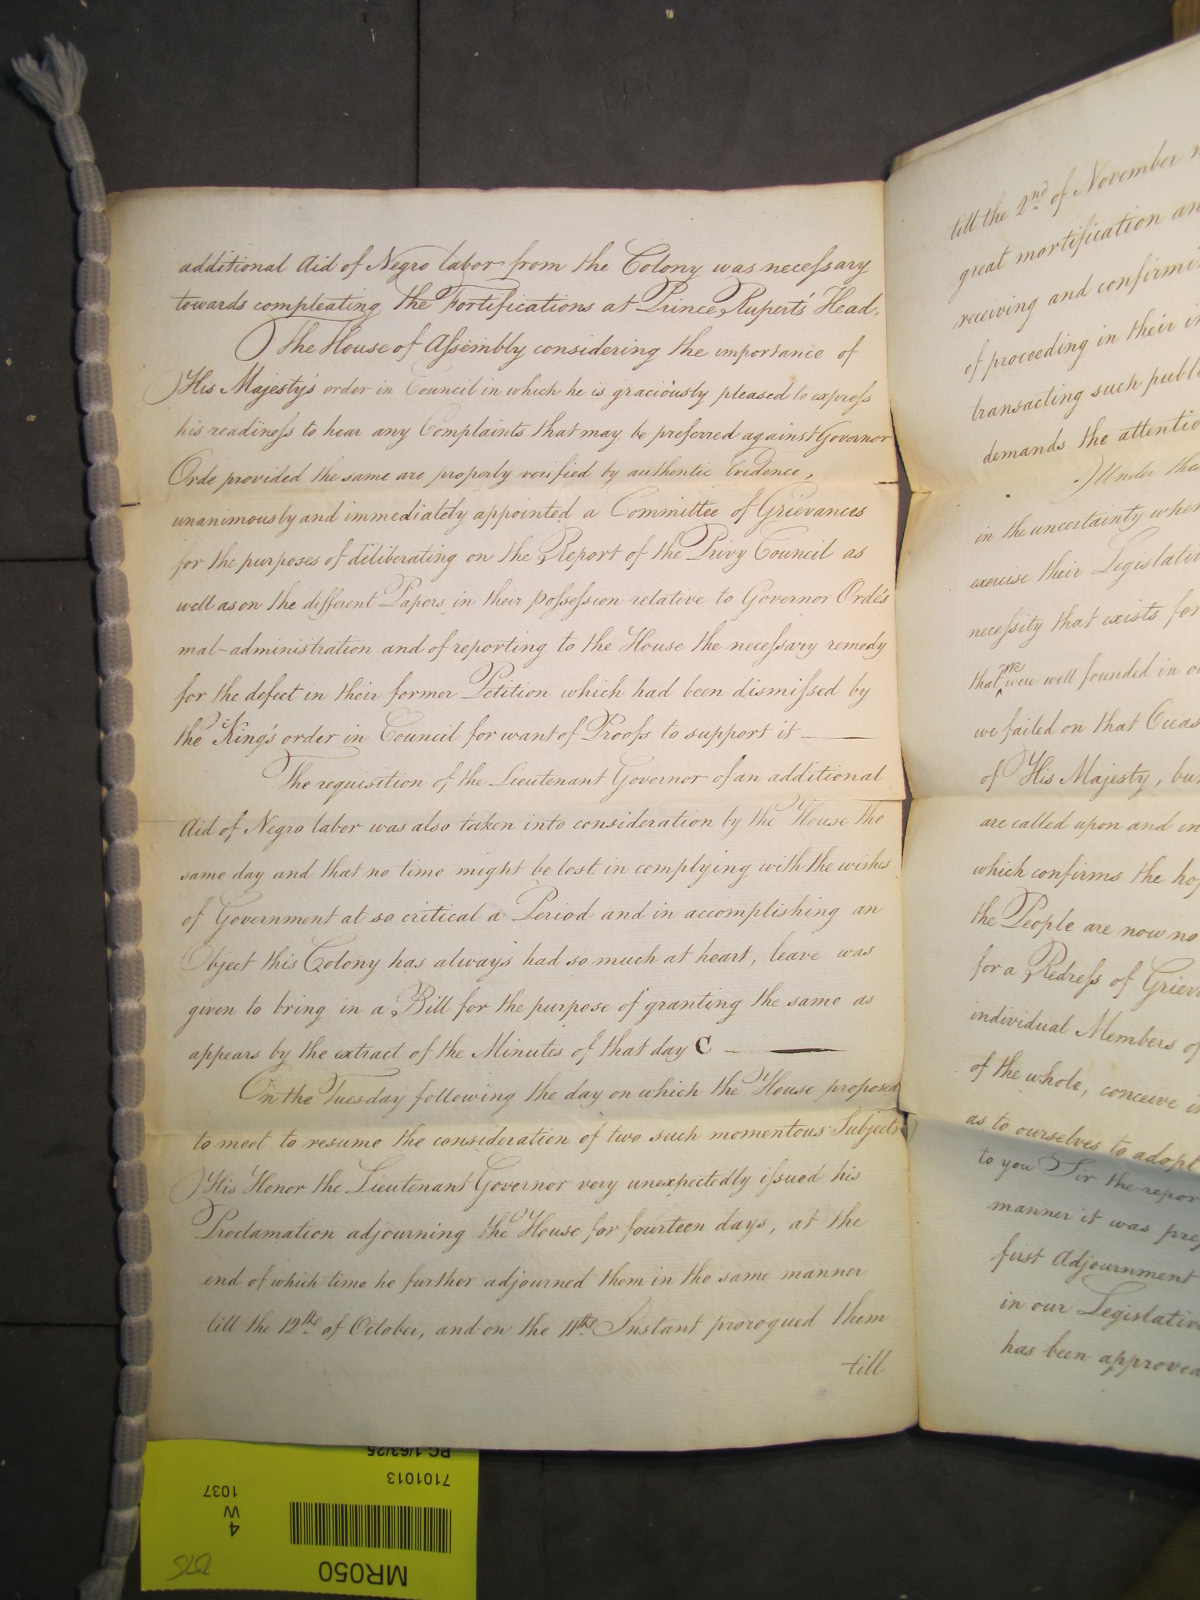 additional Aid of Negro labor from the Colony was necessary
towards compleating the Fortifications at Prince Rupert's Head.
The House of Assembly considering the importance of
His Majestys order in Council in which he is graciously pleased to express
his readiness to hear any Complaints that may be preferred against Governor
Orde provided the same are properly verified by authentic Evidence,
unanimously and immediately appointed a Committee of Grievances
for the purposes of deliberating on the Report of the Privy Council as
well as on the different Papers in their possession relative to Governor Orde's
mal-administration and of reporting to the House the necessary remedy
for the defect in their former Petition which had been dismissed by
the King's order in Council for want of Proofs to support it —
The requisition of the Lieutenant Governor of an additional
Aid of Negro labor was also taken into consideration by the House the
same day and that no time might be lost in complying with the wishes
of Government at so critical a Period and in accomplishing an
Object this Colony has always had so much at heart, leave was
given to bring in a Bill for the purpose of granting the same as
appears by the extract of the Minutes of that day C — —
On the Tuesday following the day on which the House proposed
to meet to resume the consideration of two such momentous Subjects
His Honor the Lieutenant Governor very unexpectedly issued his
Proclamation adjourning the House for fourteen days, at the
end of which time he further adjourned them in the same manner
till the 12th of October, and on the 11th Instant prorogued them
till
till the 2nd of November
great mortification
receiving and
of proceeding in their
transacting such
demands the
Under
in the uncertainty
exercise their
necessity that exists for
that we were well founded in
we failed on that
of His Majesty,
are called upon and
which confirms the
the People are now no
for a Redress of
individual Members of
of the whole, conceive
as to ourselves to adopt
to you Sir the
manner it was
first Adjournment
in our
has been approved
MR050
7101013
PC 1/63/25
4
W
1037